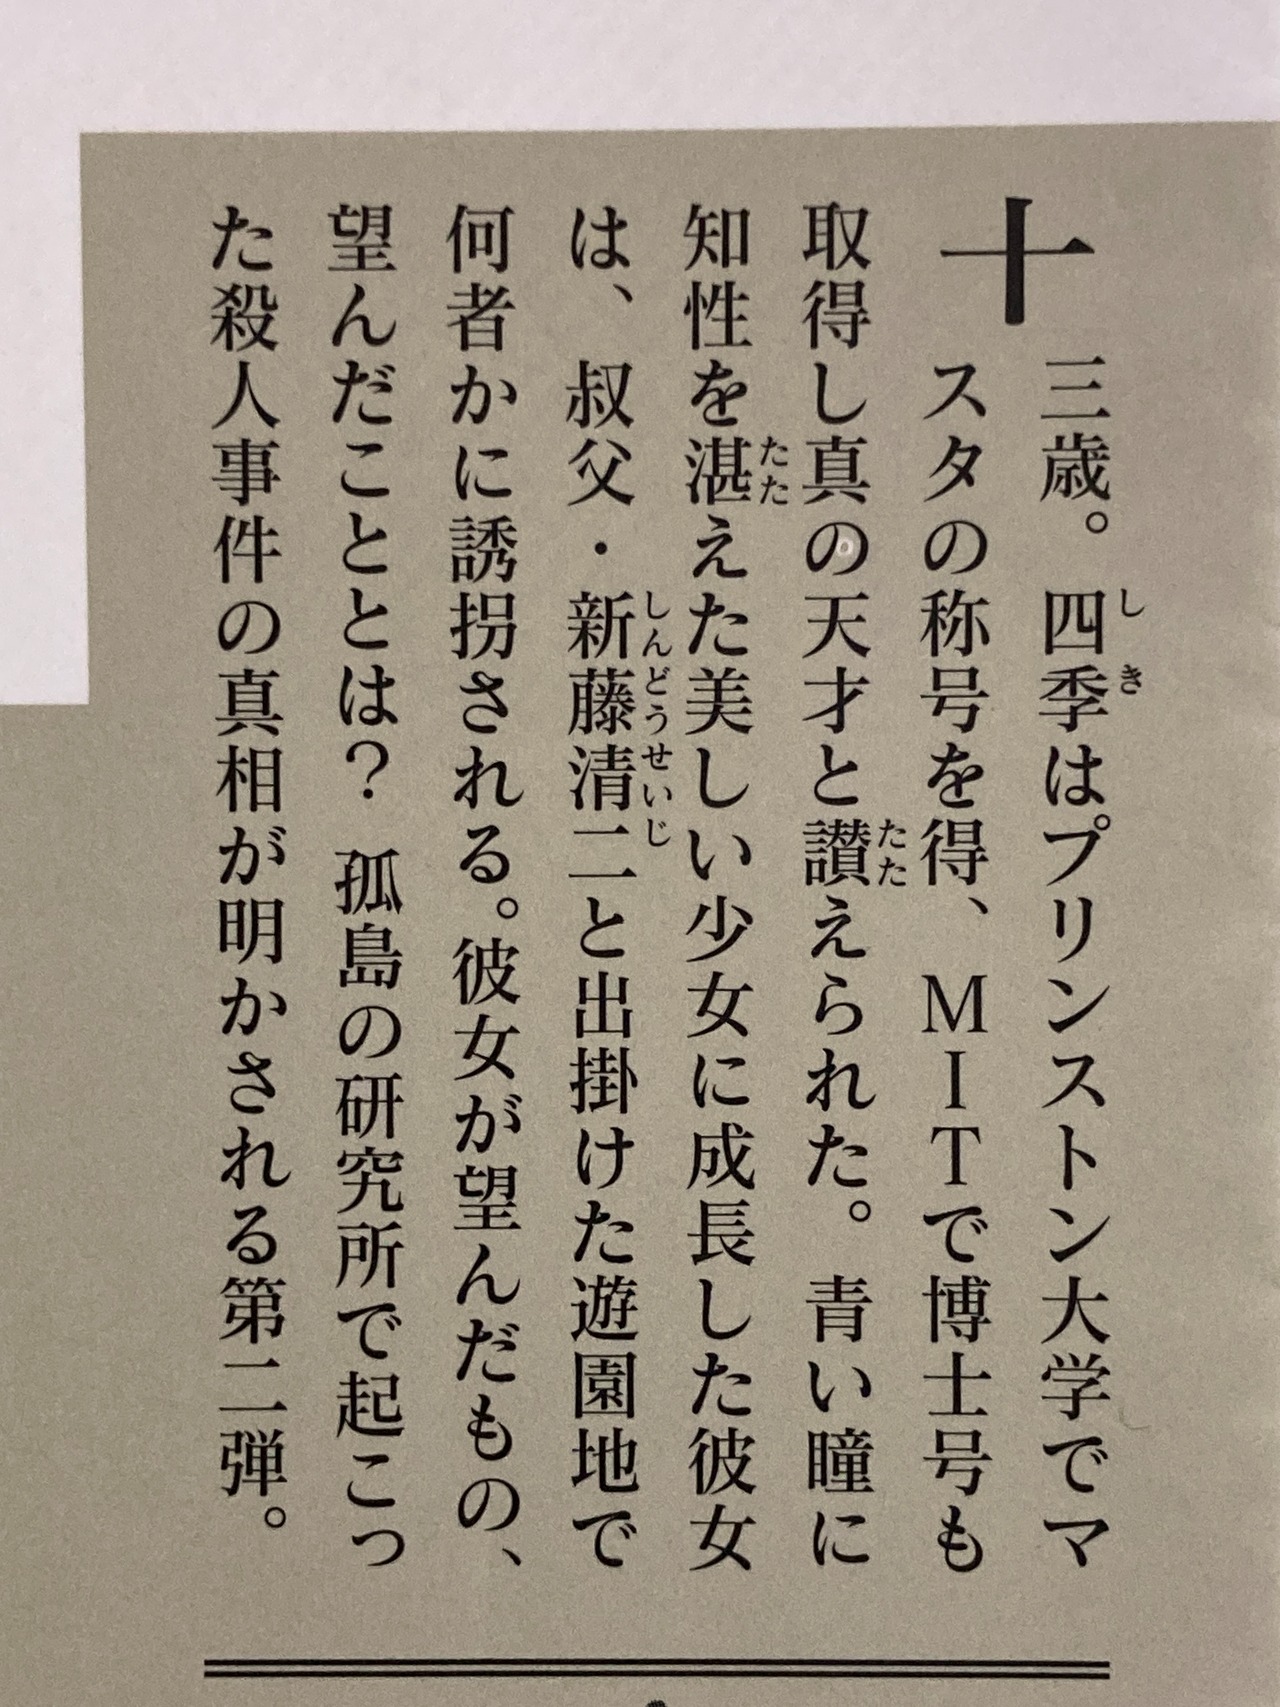 十三歳。四季はプリンストン大学でマ
スタの称号を得、MITで博士号も
取得し真の天才と讃えられた。青い瞳に
知性を湛えた美しい少女に成長した彼女
は、叔父・新藤清二と出掛けた遊園地で
何者かに誘拐される。彼女が望んだもの、
望んだこととは? 孤島の研究所で起こっ
た殺人事件の真相が明かされる第二弾。